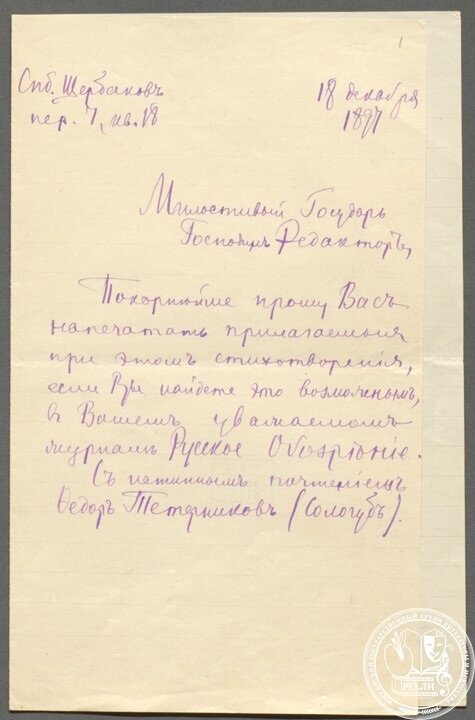 1
Спб. Щербаковъ
пер. 7, кв. 18
18 декабря
1897
Милостивый Государь
Господинъ Редакторъ,
Покорнѣйше прошу Васъ
напечатать прилагаемыя
при этомъ стихотворенія,
если Вы найдете это возможнымъ,
въ Вашемъ уважаемомъ
журналѣ Русское Обозрѣніе.
Съ истиннымъ почтеніемъ
Ѳедоръ Тетерниковъ (Сологубъ).
РОССИЙСКИЙ ГОСУДАРСТВЕННЫЙ АРХИВ ЛИТЕРАТУРЫ И ИСКУССТВА
РГАЛИ